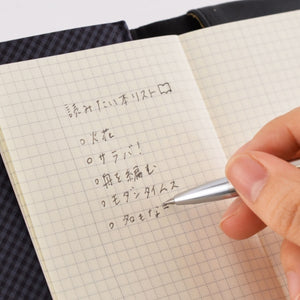 読みたい本リスト
○火花
○サラバ!
○舟を編む
○モダンタイムス